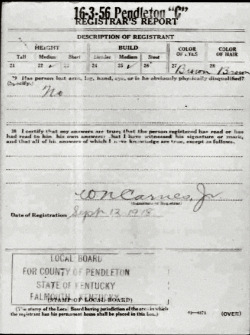 16-3-56 Pendleton "C"
REGISTRAR'S REPORT
DESCRIPTION OF REGISTRANT
HEIGHT BUILD COLOR OF EYES COLOR OF HAIR
Tall Medium Short Slender Medium Stout
21 22 23 24 25 26 27 Brown 28 Brown
29 Has person lost arm, leg, hand, eye, or is he obviously physically disqualified?
(Specify.)
No
30 I certify that my answers are true; that the person registered has read or has
had read to him his own answers; that I have witnessed his signature or mark,
and that all of his answers of which I have knowledge are true, except as follows:
W N Carnes, Jr
(Signature of Registrar)
Date of Registration Sept. 12, 1918
LOCAL BOARD
FOR COUNTY OF PENDLETON
STATE OF KENTUCKY
FALMOUTH, KENTUCKY
(STAMP OF LOCAL BOARD)
(The stamp of the Local Board having jurisdiction of the area in which
the registrant has his permanent home shall be placed in this box.)
(OVER)